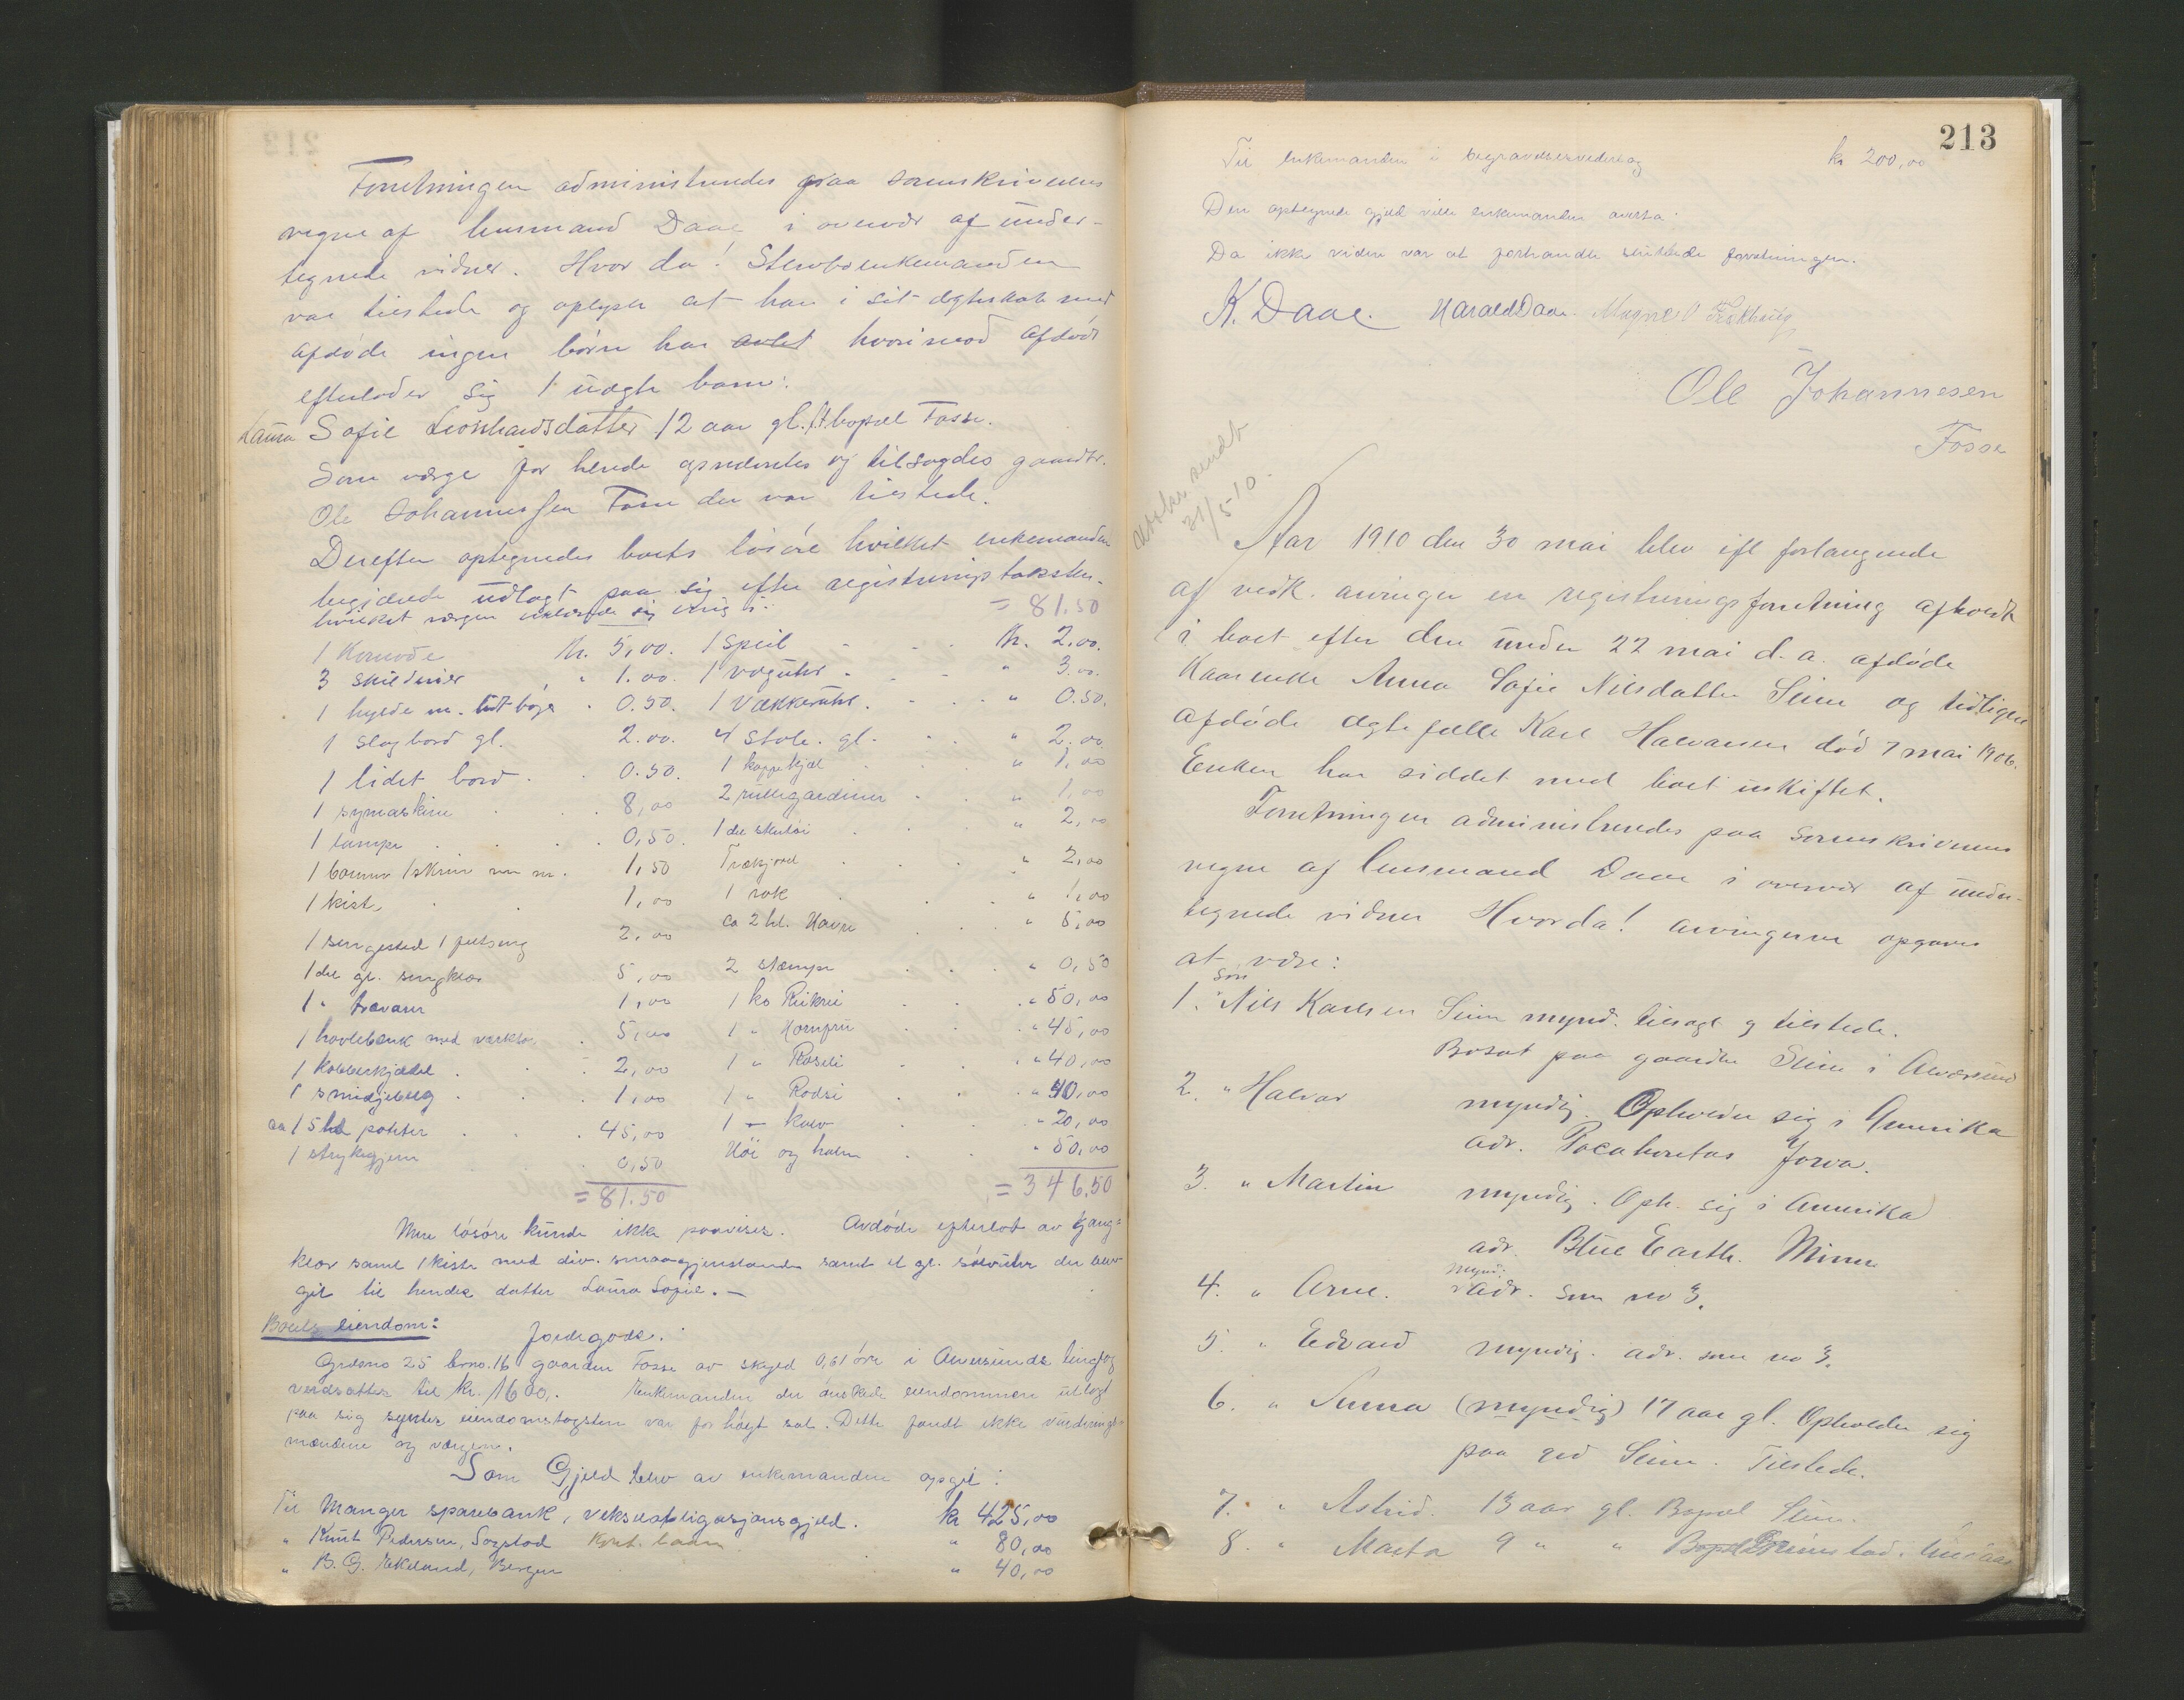 Forretningen administreredes paa sorenskriverens
vegne af lensmand Daae i overvær af under-
tegnede vidner. Hvor da! Stervboenkemanden
var tilstede og oplyste at han i sit ægteskab med
afdøde ingen børn har avlet hvorimod afdøde
efterlader sig 1 uægte barn:
Laura Sofie Leonhardsdatter 12 aar gl. bopæl Fosse.
Som værge for hende opnævntes og tilsagdes gaardbr.
Ole Johannessen Fosse der var tilstede.
Derefter optegnedes boets løsøre hvilket enkemanden
begjærede udlagt paa sig efter registreringstaksten.
hvilket værgen erklærede sig enig i: = 81.50
1 Komode Kr. 5,00. 1 speil Kr. 2,00.
3 skilderier " 1.00. 1 væguhr " 3.00.
1 hylde m. lidt bøger 0.50. 1 Vækkeruhr " 0.50.
1 slagbord gl. 2.00. 4 stole. gl. " 2.00
1 lidet bord 0.50. 1 kaffekjel " 1,00
1 symaskine 8,00 2 rullegardiner " 1,00
1 lampe 0,50. 1 del stentøi " 2,00
1 bommer 1 skrin m m. 1,50 Trækjørel " 2,00
1 kiste 1,00 1 rok " 1,00
1 sengested 1 feltseng 2,00 ca 2 hl. Havre " 8,00
1 del gl. sengklær 5,00 2 stamper " 0,50
1 " trævarer 1,00 1 ko Rikrei " 50,00
1 høvlebenk med verktøi 5,00 1 " Hornfrei " 45,00
1 kobberkjedel 2,00 1 " Roslei " 40,00
1 smidjebelg 1,00 1 " Rodsi " 40,00
ca 15 hl poteter 45,00 1 - kalv " 20,00
1 strykejern 0,50 Høi og halm " 50,00
= 81.50 = 346,50
Mere løsøre kunde ikke paavises. Avdøde efterlot av gang-
klær samt 1 kiste med div. smaagjenstande samt et gl. sølvuhr der blev
git til hendes datter Laura Sofie. —
Boets eiendom: Jordegods.
Grdsno 25 brno. 16 gaarden Fosse av skyld 0,61 øre i Alversunds tinglag
verdsattes til kr. 1600,. Enkemanden der ønskede eiendommen utlagt
paa sig syntes eiendomstagsten var for høgt sat. Dette fandt ikke vurderings-
mændene og værgen.
Som Gjeld blev av enkemanden opgit:
Til Manger sparebank, veksel obligasjonsgjeld. kr 425,00
" Knut Pedersen, Sogstad kont. laan " 80,00
" B. G. Ekeland, Bergen " 40,00
213
Til enkemanden i begravelsesvederlag kr 200,00
Den optegnede gjeld vilde enkemanden overta.
Da ikke videre var at forhandle sluttede forretningen.
K. Daae. Harald Daae. Magne O
Ole Johannesen
Fosse
sendt
31/5 10.
Aar 1910 den 30 mai blev ifl forlangende
af vedk. arvinger en registreringsforretning afholdt
i boet efter den under 22 mai d. a. afdøde
Kaarenke Anna Sofie Nilsdatter Seim og tidligere
afdøde ægtefælle Karl Halvarsen død 7 mai 1906.
Enken har siddet med boet uskiftet.
Forretningen administreredes paa sorenskriverens
vegne af lensmand Daae i overvær af under-
tegnede vidner Hvorda! arvingerne opgaves
at være:
1. søn Nils Karlsen Seim mynd. tilsagt og tilstede.
Bosat paa gaarden Seim i Alversund
2. " Halvar myndig. Opholder sig i Amerika
adr. Pocahontas Jowa.
3. " Martin myndig. Oph. sig i Amerika
adr. Blue Earth. Minn
4. " Arne. mynd. adr. som no 3.
5. " Edvard myndig. adr. som no 3.
6. " Anna (myndig) 17 aar gl. Opholder sig
paa grd Seim. Tilstede.
7. " Astrid. 13 aar gl. Bopæl Seim.
8. " Marta 9 " " Bopæl i Lindaas